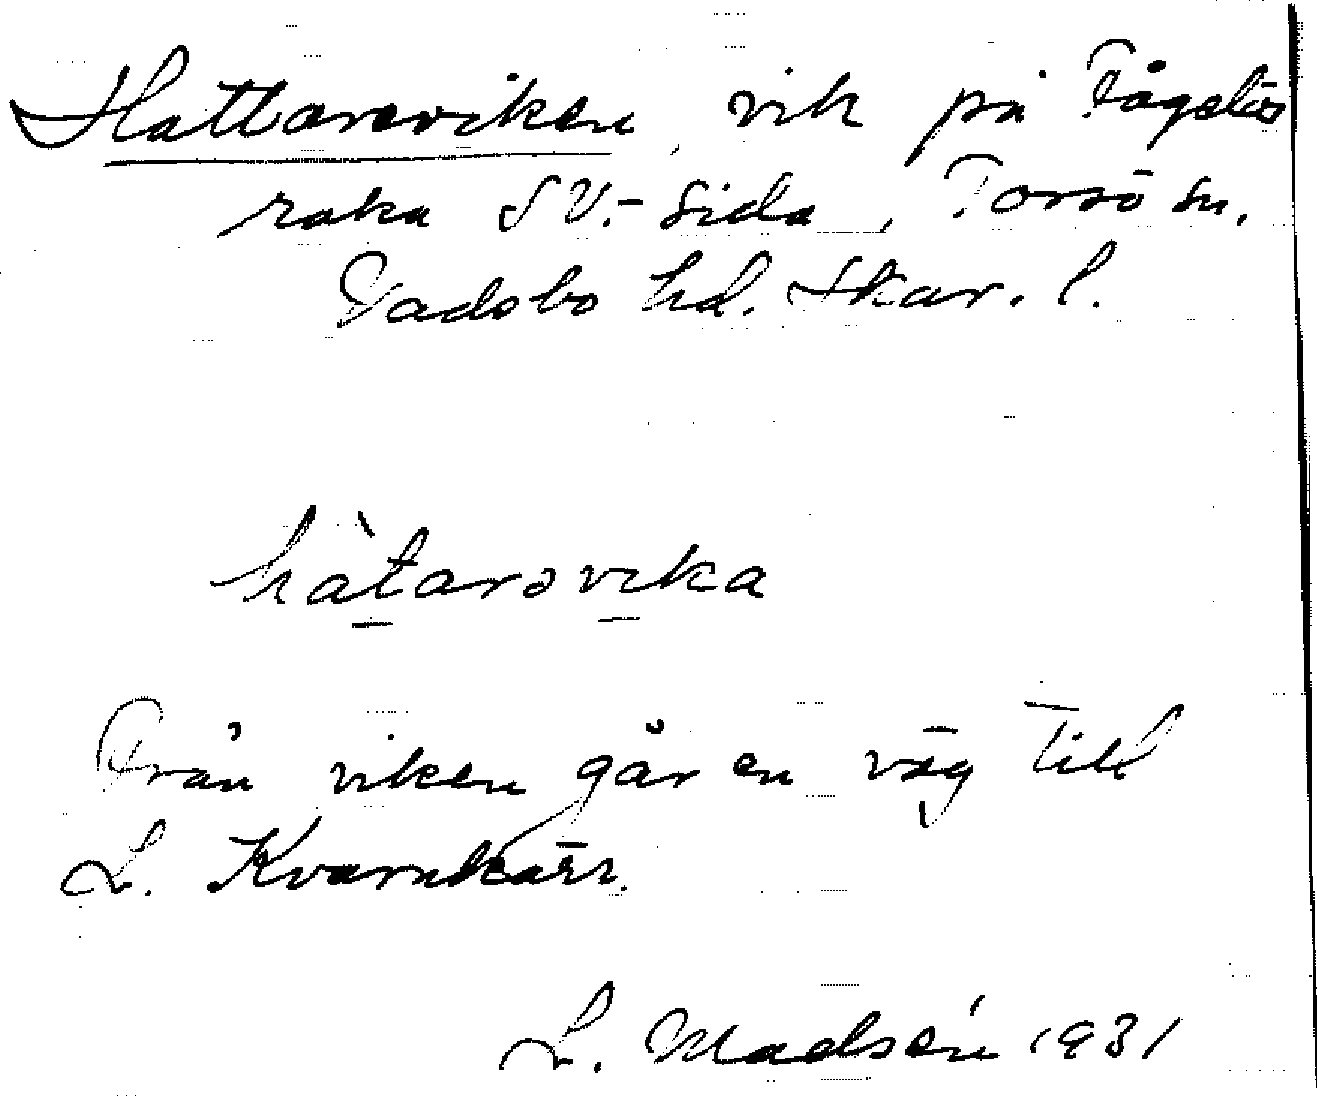 Hattareviken, vik på Fågelös
raka SV.-sida, Torsö sn.
Vadsbo hd. Skar. l.
hàtarəvika
Från viken går en väg till
L. Kvarnkärr.
L. Madsén 1931